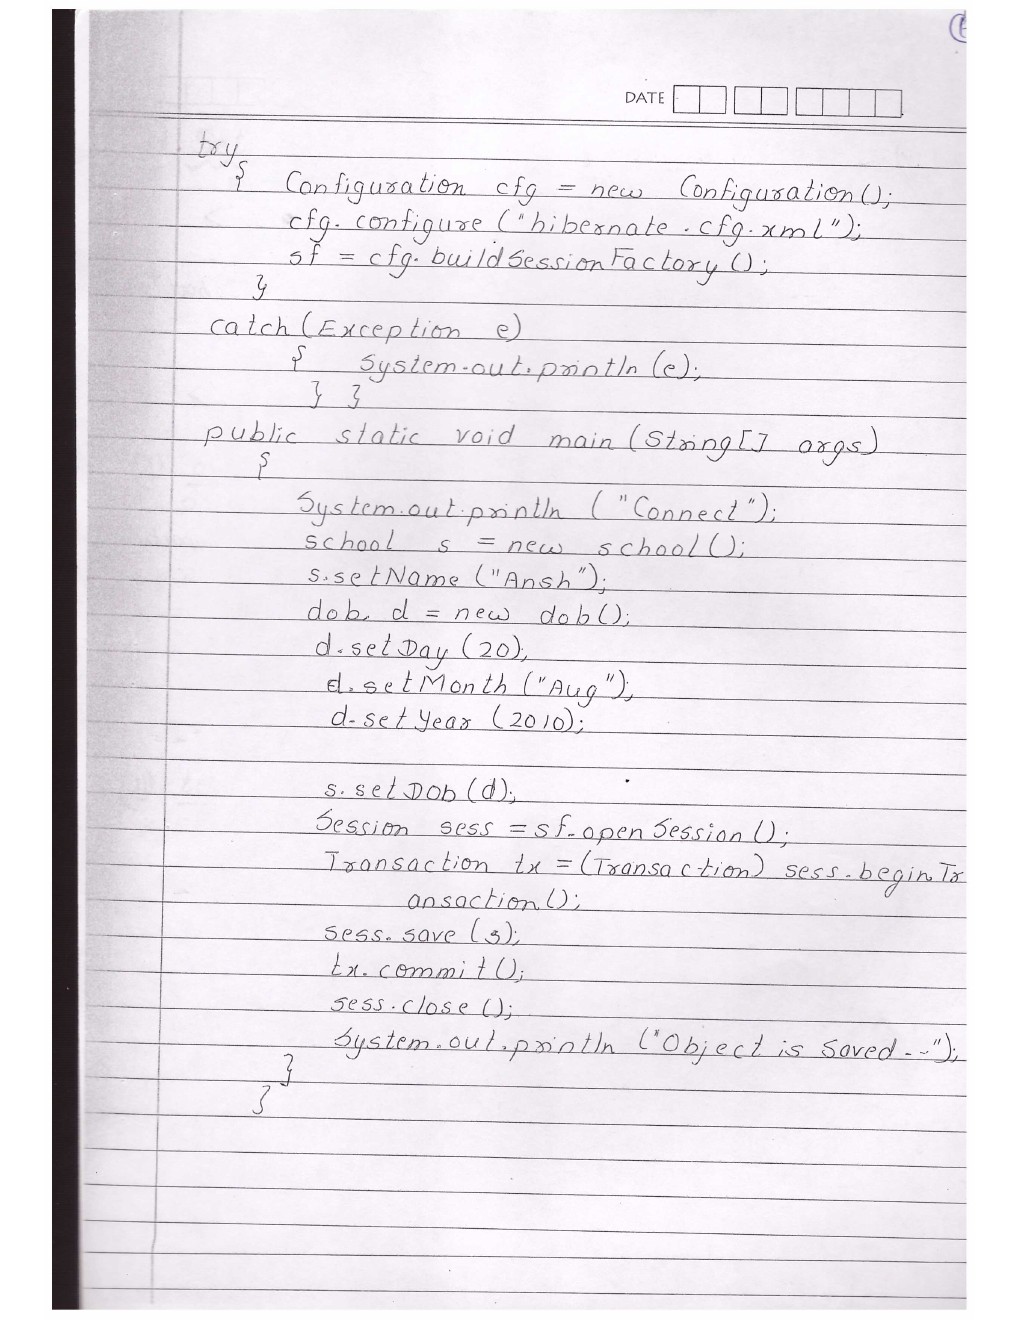 DATE
try
{ Configuration cfg = new Configuration();
cfg.configure ("hibernate.cfg.xml");
sf = cfg.buildSessionFactory();
}
catch(Exception e)
{ System.out.println(e);
} }
public static void main (String[] args)
{
System.out.println ("Connect");
school s = new school();
s.setName ("Ansh");
dob d = new dob();
d.setDay (20);
d.setMonth ("Aug");
d.setYear (2010);
s.setDob (d);
Session sess = sf.openSession();
Transaction tx = (Transaction) sess.beginTr
ansaction();
sess.save (s);
tx.commit();
sess.close();
System.out.println ("Object is Saved--");
}
}